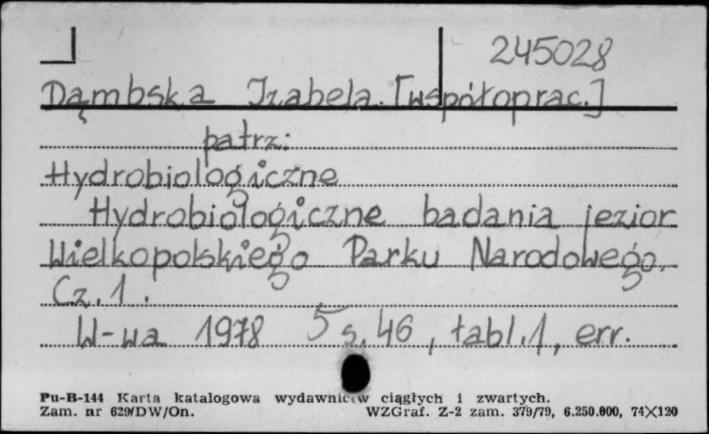 245028
Dąmbska Izabela. [współoprac.]
patrz:
Hydrobiologiczne
Hydrobiologiczne badania jezior
Wielkopolskiego Parku Narodowego.
Cz. 1.
W-wa 1978 5 s. 46, tabl. 1, err.
Pu-B-144 Karta katalogowa wydawnictw ciągłych i zwartych.
Zam. nr 629/DW/On. WZGraf. Z-2 zam. 379/79, 6.250.000, 74×120